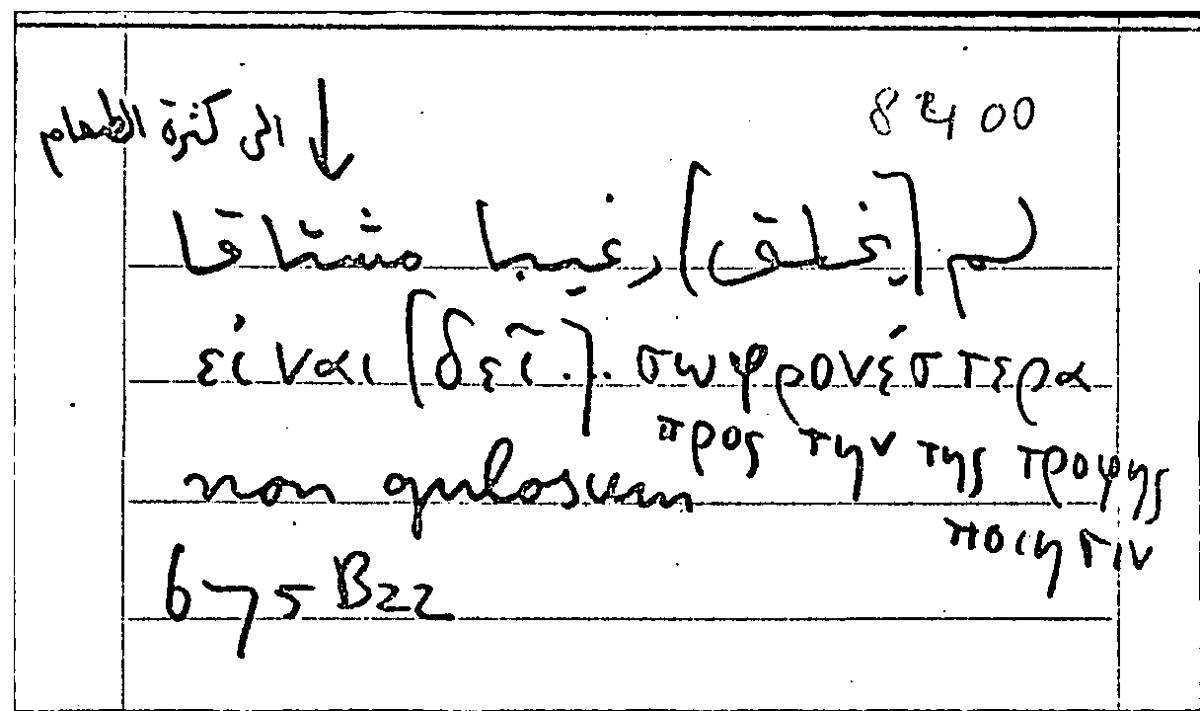 8400
الى كثرة الطعام ↓
لم [يخلق] رغيبا مشتاقا
εἶναι [δεῖ...] σωφρονέστερα
προς την της τροφης
ποιησιν
non gulosum
675 B22